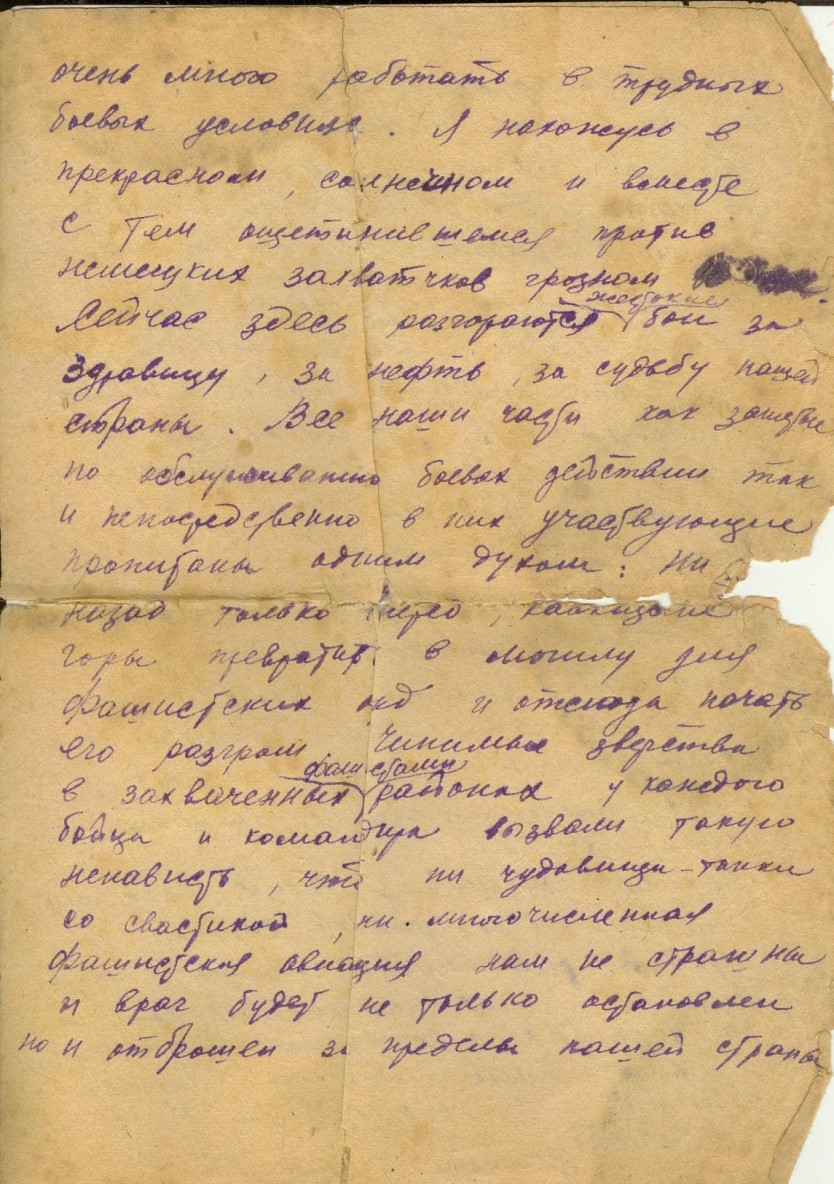 очень много работать в трудных
боевых условиях. Я нахожусь в
прекрасном, солнечном и вместе
с тем ощетинившемся против
немецких захватчков грозном
жестокие
Сейчас здесь разгораются бои за
Здравницу, за нефть, за судьбу нашей
страны. Все наши части как занятые
по обслуживанию боевых действии так
и непосредственно в них участвующие
пропитаны одним духом: Ни
назад только
горы превратить в могилу для
фашистских орд и отсюда начать
его разгром. Чинимые зверства
фашистами
в захваченных районах у каждого
бойца и командира вызвали такую
ненависть, что ни чудовищи-танки
со свастикой, ни многочисленная
фашистская авиация нам не страшны
и враг будет не только остановлен
но и отброшен за пределы нашей страны